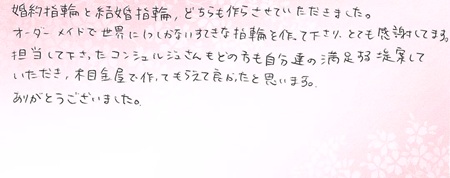 婚約指輪と結婚指輪，どちらも作らさせていただきました。
オーダーメイドで世界に1つしかないすてきな指輪を作って下さり、とても感謝してます。
担当して下さったコンシェルジュさんもどの方も自分達の満足る提案して
いただき，木目金屋で作ってもらえて良かったと思います。
ありがとうございました。